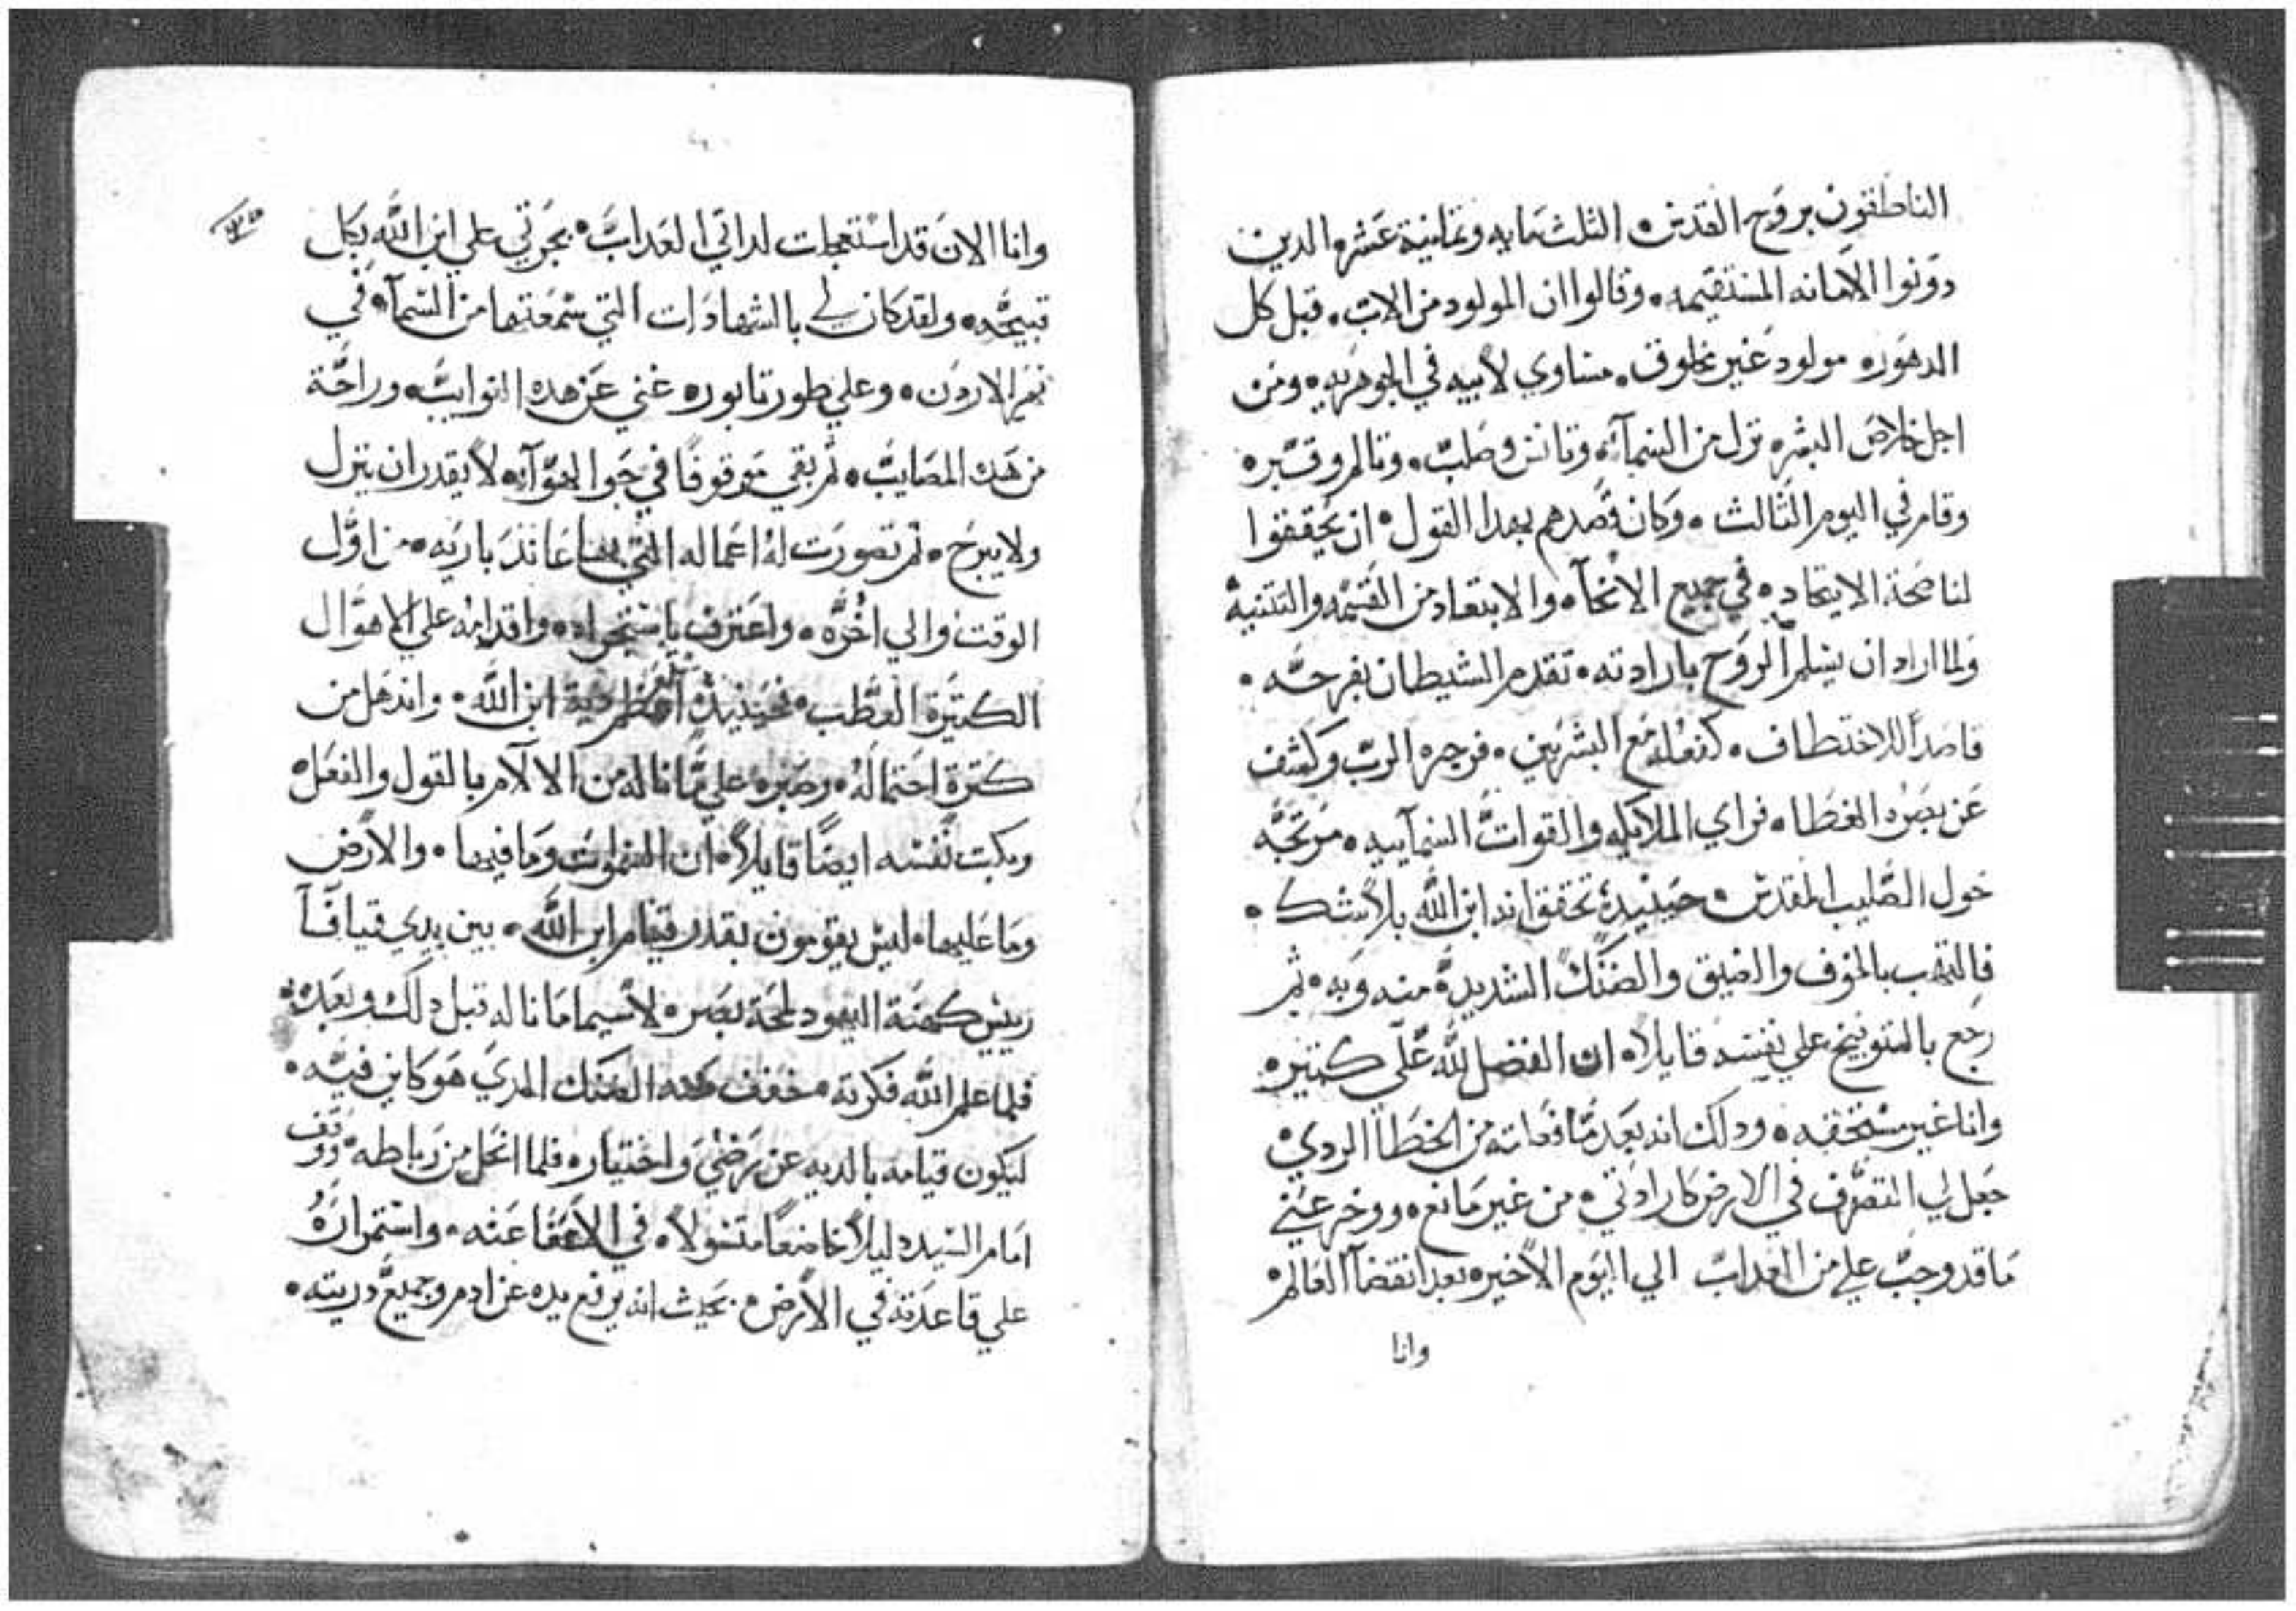 الناطقون بروح القدس • الثلث مايه وثمانية عشر • الدين
دونوا الامانه المستقيمه • وقالوا ان المولود من الاب • قبل كل
الدهور • مولود غير مخلوق • مساوي لابيه في الجوهريه • ومن
اجل خلاص البشر • نزل من السمآء • وتانس وصلب • وتالم وقبر •
وقام في اليوم الثالث • وكان قصدهم بهدا القول • ان يحققوا
لنا صحة الاتحاد • في جميع الانحآء • والابتعاد من القسمه والتثنية
ولما اراد ان يسلم الروح بارادته • تقدم الشيطان بفرحه •
قاصداً للاختطاف • كفعله مع البشريين • فزجره الرب وكشف
عن بصره الغطا • فراي الملايكه والقوات السمآييه • مرتجه
حول الصليب المقدس • حينيدٍ تحقق انه ابن الله بلا شك •
فالتهب بالخوف والضيق والضنك الشديدة منه وبه • ثم
رجع بالتوبيخ علي نفسه قايلا • ان الفضل لله علّي كتير •
وانا غير مستحقه • ودلك انه بعد ما فعلته من الخطا الردي •
جعل لي التصرف في الارض كارادتي • من غير مانع • ووخر عني
ما قد وجب علي من العداب الي اليوم الاخير • بعد انقضآ العالم •
وانا
وانا الان قد استعجلت لداتي العداب • بجرتي علي ابن الله بكل
قبيحه • ولقد كان لي بالشهادات التي سمعتها من السمآء • في
نهر الاردن • وعلي طور تابور • غني عن هده النوايب • وراحة
من هده المصايب • ثم بقي موقوفًا في جو الهوآء • لا يقدر ان ينزل
ولا يبرح • ثم تصورت له اعماله التي بها عاند باريه • من اول
الوقت والي اخره • واعترف باستجراه • واقدامه علي الاهوال
الكتيرة العطب • فحينيدٍ ابن الله • واندهل من
كترة احتماله • وصبره علي ما ناله من الالآم بالقول والفعل •
وبكت نفسه ايضًا قايلا • ان السموات وما فيها • والارض
وما عليها • ليس يقومون بقدر قيام ابن الله • بين يدي قيافآ
رييس كهنة اليهود لمحة بصر • لاسيما ما ناله قبل دلك وبعده •
فلما علم الله فكرته • خفف عنه الضنك الدي هو كاين فيه •
ليكون قيامه بالديه عن رضيَ واختيار • فلما انحل من رباطه • ووقف
امام السيد دليلا خاضعًا متسولا • في الاعفا عنه • واستمراره
علي قاعدته في الارض • بحيث انه يرفع يده عن ادم وجميع دريته •